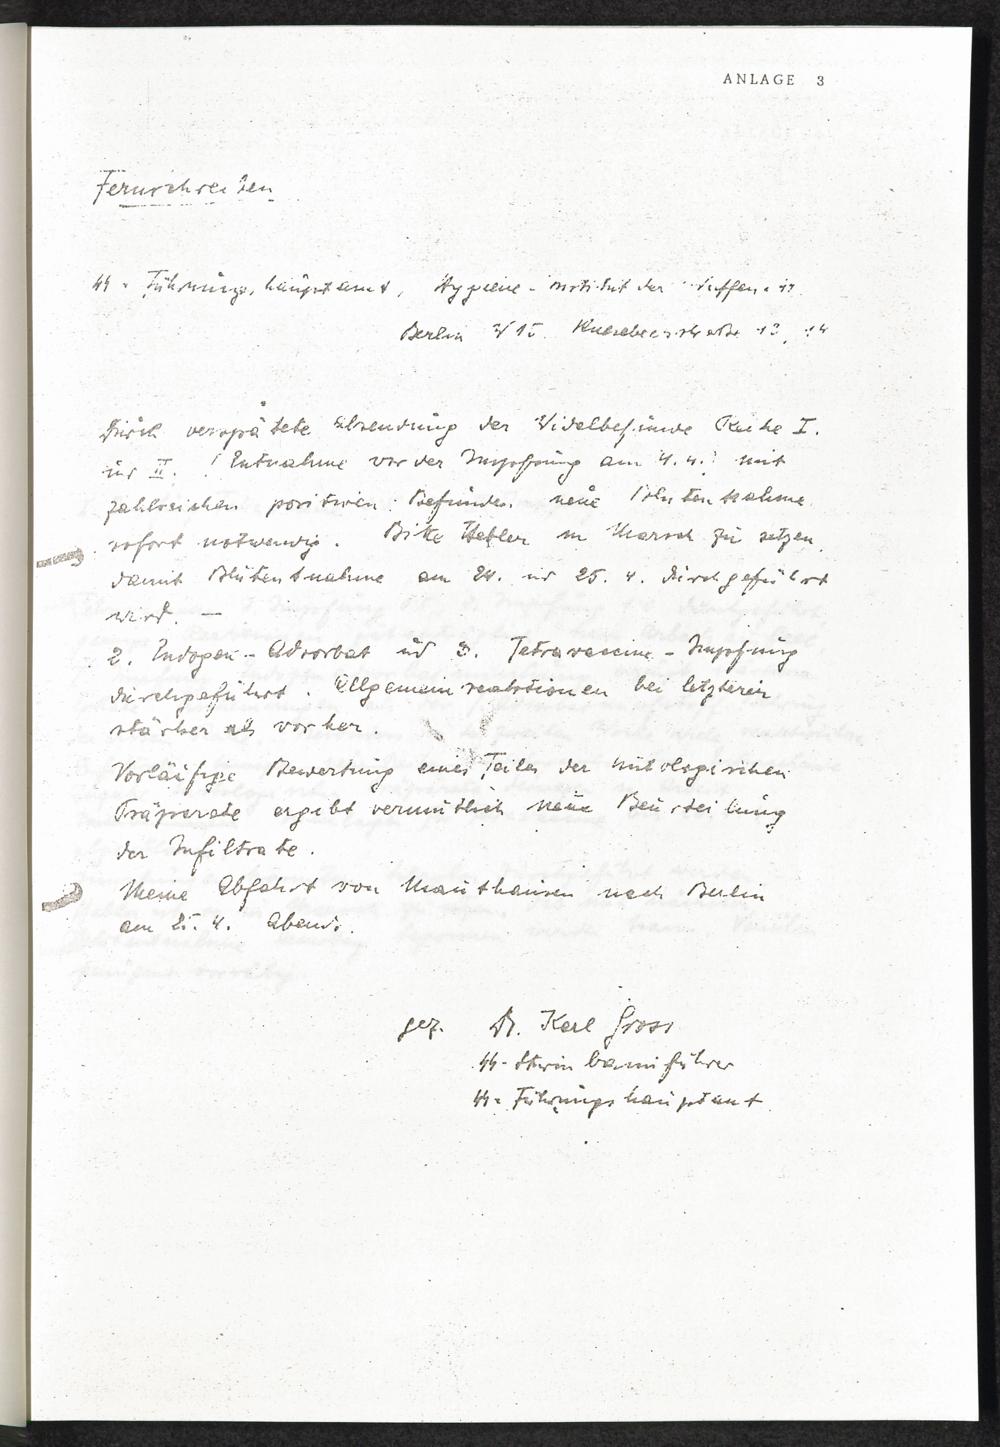 ANLAGE 3
Fernschreiben
SS-Führungshauptamt, Hygiene-Institut der Waffen-SS
Berlin W 15. Knesebeckstraße 13, 14
Durch verspätete Absendung der Widalbefunde Reihe I.
ud II. (Entnahme vor der Impfung am 4.4.) mit
zahlreichen positiven Befunden neue Blutentnahme
sofort notwendig. Bitte in Marsch zu setzen,
damit Blutentnahme am 24. ud 25. 4. durchgeführt
wird. —
2. Endogen-Adsorbat ud 3. Tetravaccine-Impfung
durchgeführt. Allgemeinreaktionen bei letzterer
stärker als vorher.
Vorläufige Bewertung eines Teiles der histologischen
Präparate ergibt vermutlich neue Beurteilung
der Infiltrate.
Meine Abfahrt von Mauthausen nach Berlin
am 25. 4. Abends.
gez. Dr. Karl Gross
SS-Sturmbannführer
SS-Führungshauptamt